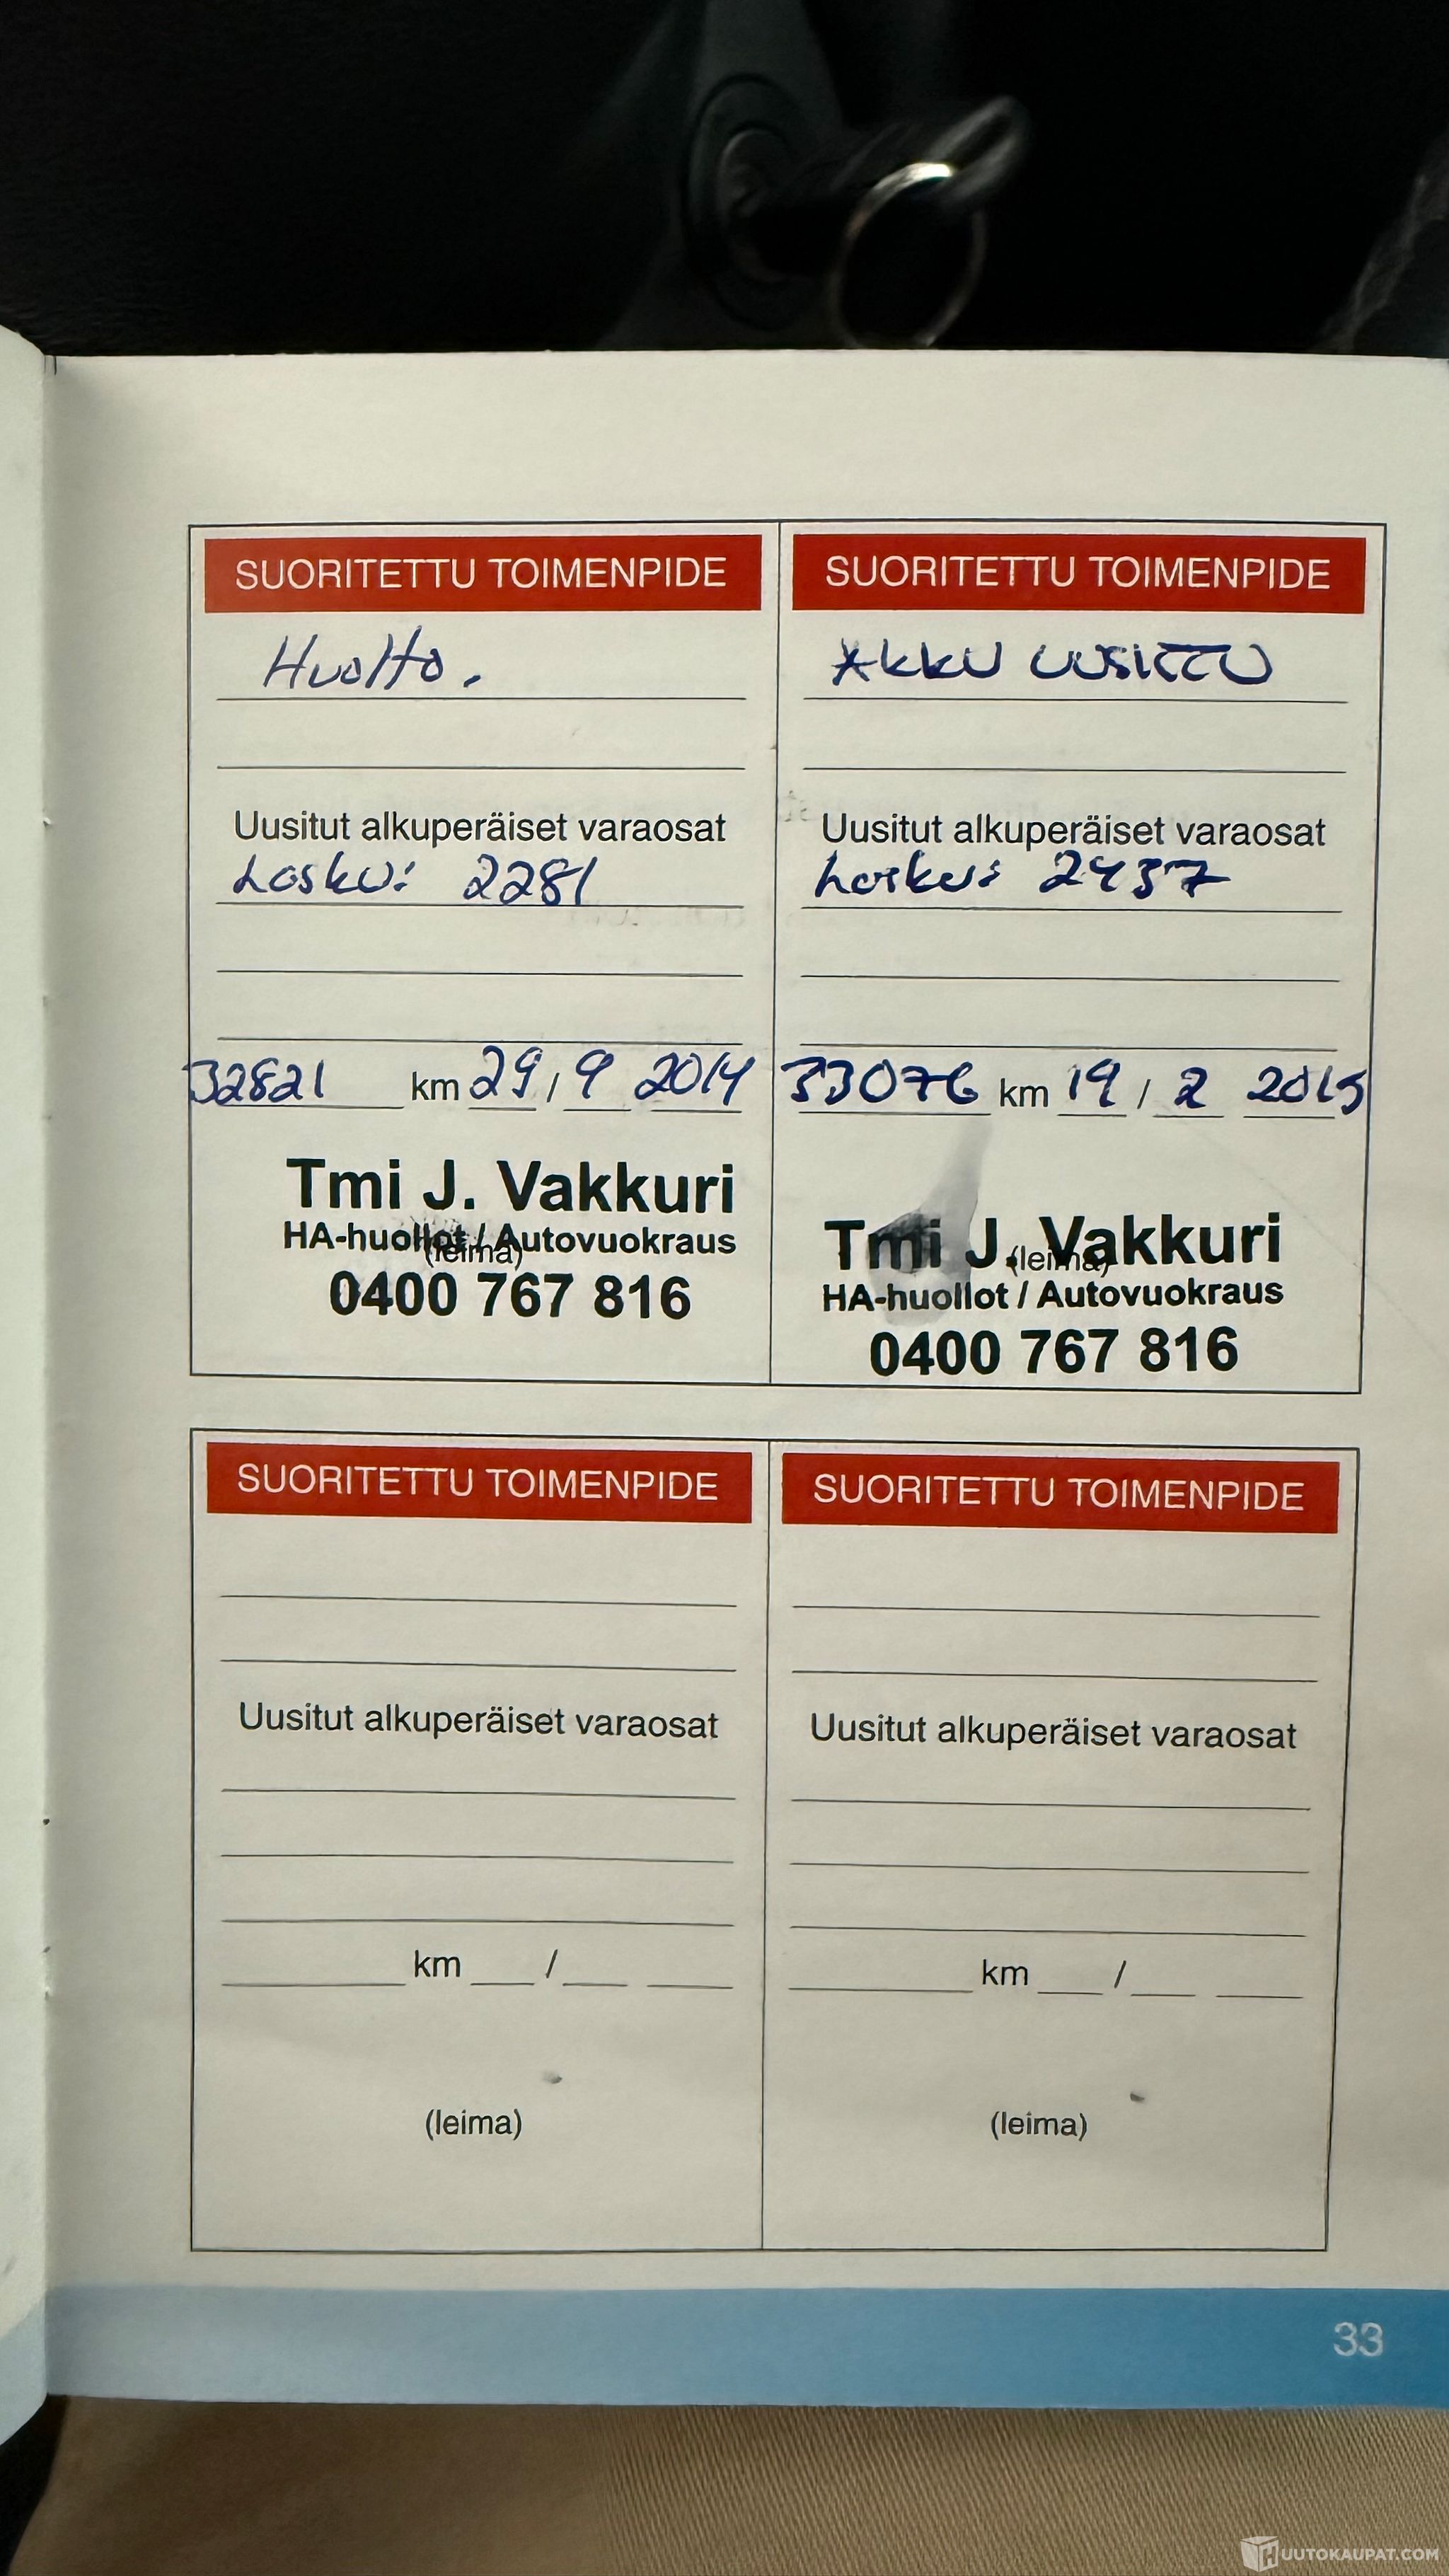 SUORITETTU TOIMENPIDE
Huolto.
Uusitut alkuperäiset varaosat
Lasku: 2281
32821 km 29 / 9 2014
Tmi J. Vakkuri
HA-huollot / Autovuokraus
(leima)
0400 767 816
SUORITETTU TOIMENPIDE
AKKU UUSITTU
Uusitut alkuperäiset varaosat
Lasku: 2437
33076 km 19 / 2 2015
Tmi J. Vakkuri
(leima)
HA-huollot / Autovuokraus
0400 767 816
SUORITETTU TOIMENPIDE
Uusitut alkuperäiset varaosat
km /
(leima)
SUORITETTU TOIMENPIDE
Uusitut alkuperäiset varaosat
km /
(leima)
33
HUUTOKAUPAT.COM